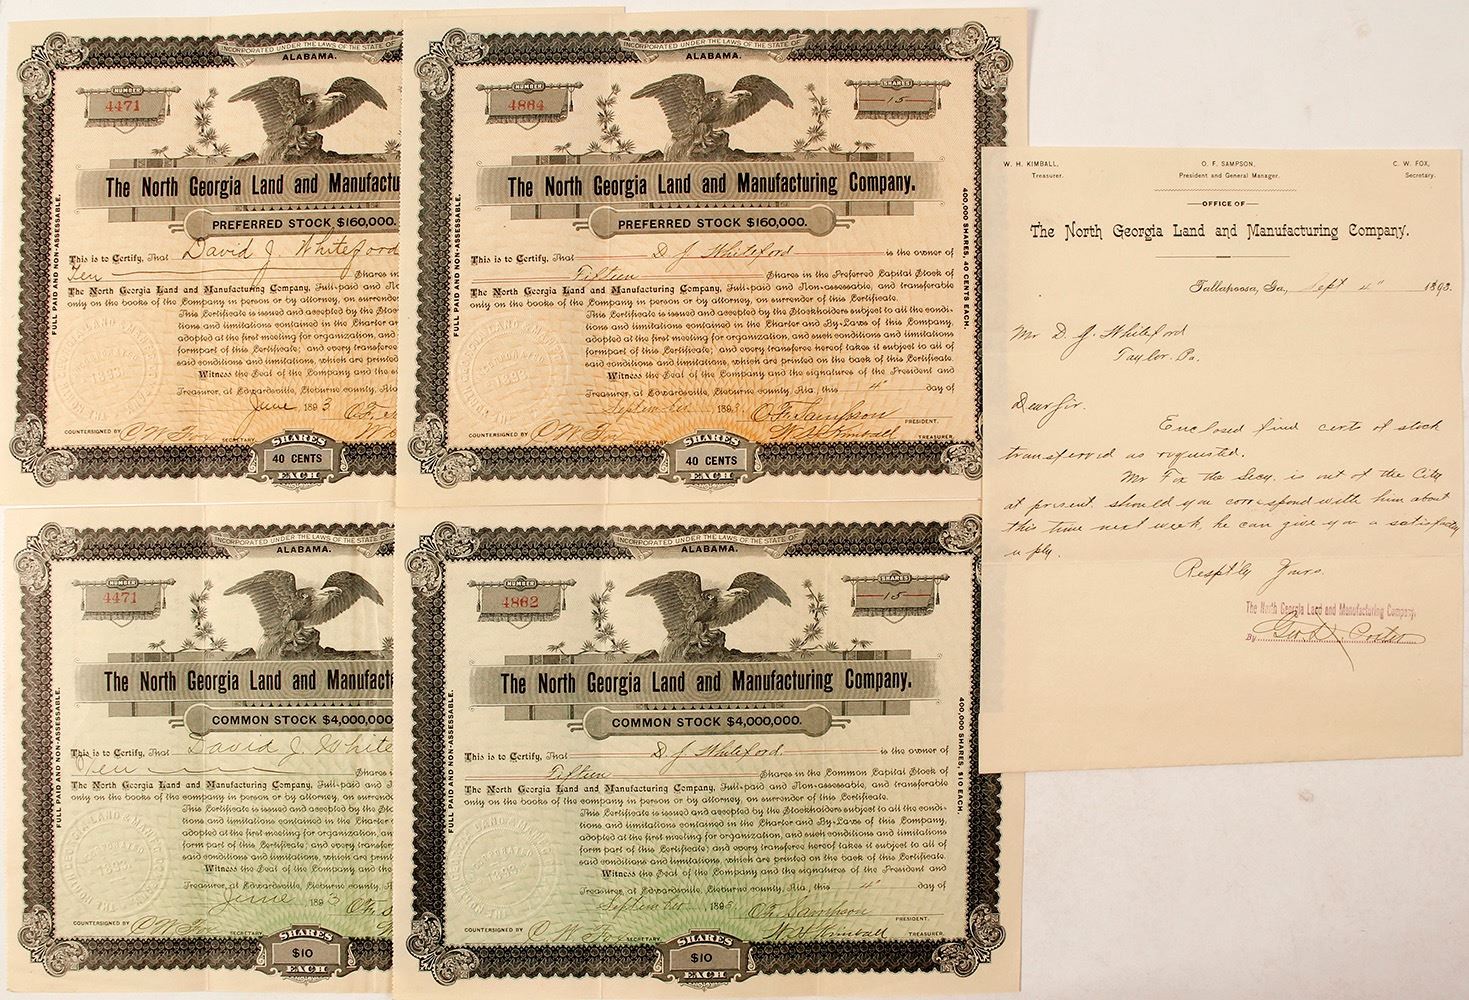 INCORPORATED UNDER THE LAWS OF THE STATE OF
ALABAMA.
NUMBER
4471
The North Georgia Land and Manufactu
PREFERRED STOCK $160,000.
FULL PAID AND NON-ASSESSABLE.
This is to Certify, That David J. Whiteford
Ten Shares in
The North Georgia Land and Manufacturing Company, Full-paid and No
only on the books of the Company in person or by attorney, on surrender
This Certificate is issued and accepted by the
tions and limitations contained in the Charter a
adopted at the first meeting for organization, and
form part of this Certificate; and every transfere
said conditions and limitations, which are printed
Witness the Seal of the Company and the
Treasurer, at Edwardsville, Cleburne county, Ala
June 1893
COUNTERSIGNED BY C W Fox SECRETARY.
SHARES
40 CENTS
EACH
INCORPORATED UNDER THE LAWS OF THE STATE OF
ALABAMA.
NUMBER
4864
SHARES
15
The North Georgia Land and Manufacturing Company.
PREFERRED STOCK $160,000.
FULL PAID AND NON-ASSESSABLE.
400,000 SHARES, 40 CENTS EACH.
This is to Certify, That D. J. Whiteford is the owner of
Fifteen Shares in the Preferred Capital Stock of
The North Georgia Land and Manufacturing Company, Full-paid and Non-assessable, and transferable
only on the books of the Company in person or by attorney, on surrender of this Certificate.
This Certificate is issued and accepted by the Stockholders subject to all the condi-
tions and limitations contained in the Charter and By-Laws of this Company,
adopted at the first meeting for organization, and such conditions and limitations
form part of this Certificate; and every transferee hereof takes it subject to all of
said conditions and limitations, which are printed on the back of this Certificate.
Witness the Seal of the Company and the signatures of the President and
Treasurer, at Edwardsville, Cleburne county, Ala, this 4" day of
September 1893. O. F. Sampson PRESIDENT.
COUNTERSIGNED BY C W Fox SECRETARY. W H Kimball TREASURER.
SHARES
40 CENTS
EACH
INCORPORATED UNDER THE LAWS OF THE STATE OF
ALABAMA.
NUMBER
4471
The North Georgia Land and Manufact
COMMON STOCK $4,000,000
FULL PAID AND NON-ASSESSABLE.
This is to Certify, That David J. White
Ten Shares i
The North Georgia Land and Manufacturing Company, Full-paid and
only on the books of the company in person or by attorney, on surrender
This Certificate is issued and accepted by the
tions and limitations contained in the Charter
adopted at the first meeting for organization,
form part of this Certificate; and every transfere
said conditions and limitations, which are print
Witness the Seal of the Company and the
Treasurer, at Edwardsville, Cleburne county, A
June 1893
COUNTERSIGNED BY C W Fox SECRETARY.
SHARES
$10
EACH
INCORPORATED UNDER THE LAWS OF THE STATE OF
ALABAMA.
NUMBER
4862
SHARES
15
The North Georgia Land and Manufacturing Company.
COMMON STOCK $4,000,000.
FULL PAID AND NON-ASSESSABLE.
400,000 SHARES, $10 EACH.
This is to Certify, That D. J. Whiteford is the owner of
Fifteen Shares in the Common Capital Stock of
The North Georgia Land and Manufacturing Company, Full-paid and Non-assessable, and transferable
only on the books of the company in person or by attorney, on surrender of this Certificate.
This Certificate is issued and accepted by the Stockholders subject to all the condi-
tions and limitations contained in the Charter and By-Laws of this Company,
adopted at the first meeting for organization, and such conditions and limitations
form part of this Certificate; and every transferee hereof takes it subject to all of
said conditions and limitations, which are printed on the back of this Certificate.
Witness the Seal of the Company and the signatures of the President and
Treasurer, at Edwardsville, Cleburne county, Ala, this 4" day of
September 1893. O. F. Sampson PRESIDENT.
COUNTERSIGNED BY C W Fox SECRETARY. W H Kimball TREASURER.
SHARES
$10
EACH
W. H. KIMBALL, O. F. SAMPSON, C. W. FOX,
Treasurer. President and General Manager. Secretary.
OFFICE OF
The North Georgia Land and Manufacturing Company.
Tallapoosa, Ga., Sept 4" 1893.
Mr D. J. Whiteford
Taylor Pa.
Dear Sir.
Enclosed find certs of stock
transferred as requested.
Mr Fox the Secy. is out of the City
at present. should you correspond with him about
this time next week, he can give you a satisfactory
reply.
Resptly Yours
The North Georgia Land and Manufacturing Company,
By